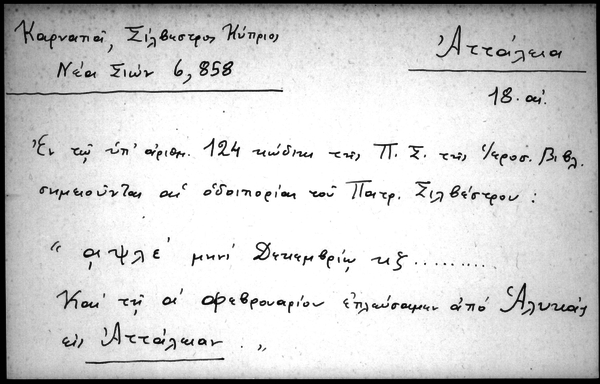 Καρναπᾶ, Σίλβεστρος Κύπριος
Νέα Σιών 6, 858
Ἀττάλεια
18. αἰ.
Ἐν τῷ ὑπ' ἀριθμ. 124 κώδικι τῆς Π. Σ. τῆς Ἱεροσ. Βιβλ.
σημειοῦνται αἱ ὁδοιπορίαι τοῦ Πατρ. Σιλβέστρου :
“ αψλε' μηνὶ Δεκεμβρίῳ κζ ..........
Καὶ τῇ α' Φεβρουαρίου ἐπλεύσαμεν ἀπὸ Ἁλυκὰς
εἰς Ἀττάλειαν . „